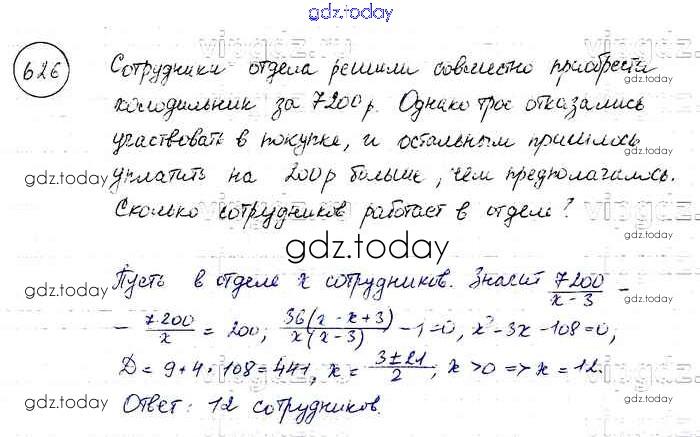 gdz.today
626
Сотрудники отдела решили совместно приобрести
холодильник за 7200 р. Однако трое отказались
участвовать в покупке, и остальным пришлось
уплатить на 200 р больше, чем предполагалось.
Сколько сотрудников работает в отделе?
gdz.today
Пусть в отделе x сотрудников. Значит 7200/(x-3) -
- 7200/x = 200; 36(x-x+3)/(x(x-3)) - 1 = 0, x² - 3x - 108 = 0;
D = 9 + 4 · 108 = 441, x = (3±21)/2; x > 0 => x = 12.
Ответ: 12 сотрудников.
gdz.today
gdz.today
gdz.today
gdz.today
gdz.today
gdz.today
gdz.today
gdz.today